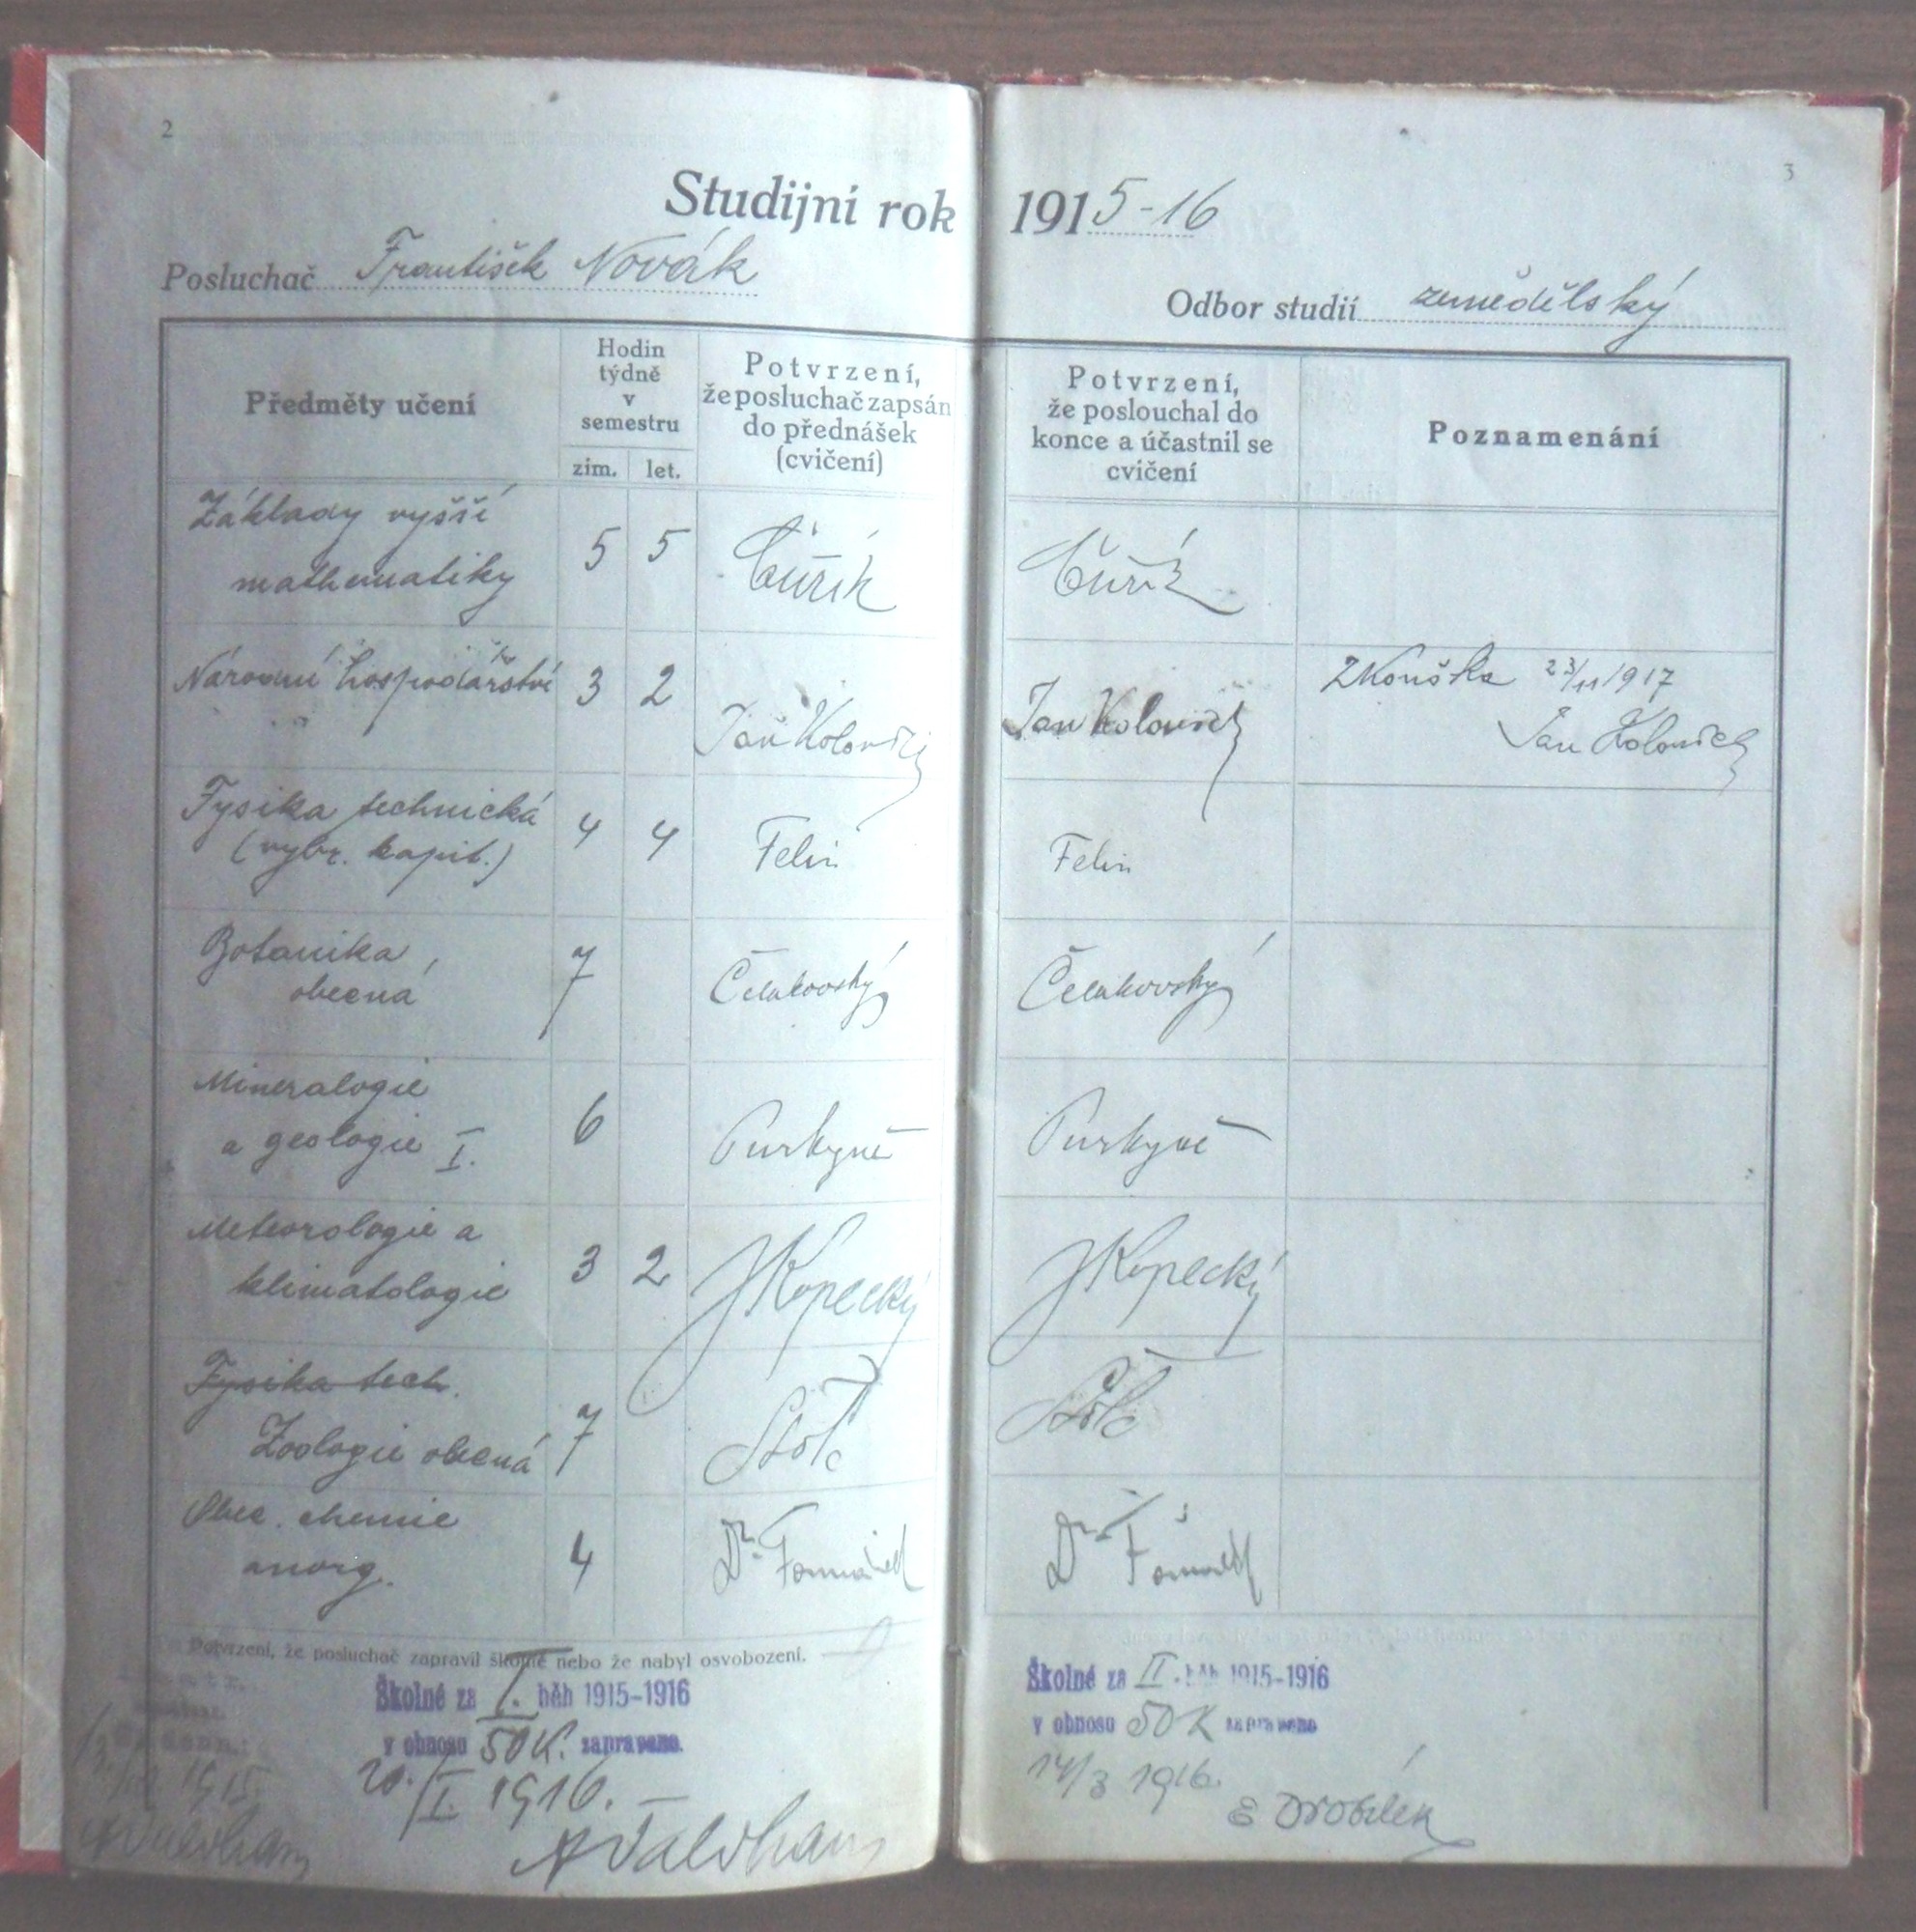 2
Studijní rok 1915-16
3
Posluchač František Novák
Odbor studií zemědělský
Předměty učení
Hodin
týdně
v
semestru
zim. let.
Potvrzení,
že posluchač zapsán
do přednášek
(cvičení)
Potvrzení,
že poslouchal do
konce a účastnil se
cvičení
Poznamenání
Základy vyšší
mathematiky
5 5
Čuřík
Čuřík
Národní hospodářství
3 2
Jan Koloušek
Jan Koloušek
Zkouška 23/11 1917
Jan Koloušek
Fysika technická
(vybr. kapit.)
4 4
Felix
Felix
Botanika
obecná
7
Čelakovský
Čelakovský
Mineralogie
a geologie I.
6
Purkyně
Purkyně
Meteorologie a
klimatologie
3 2
JKopecký
JKopecký
Fysika tech.
Zoologie obecná
7
Štolc
Štolc
Obec. chemie
anorg.
4
Dr.
Dr.
Potvrzení, že posluchač zapravil školné nebo že nabyl osvobození.
Školné za I. běh 1915-1916
v obnosu 50 K. zapraveno.
20./I. 1916.
Školné za II. běh 1915-1916
v obnosu 50 K zapraveno
14/3 1916.
1915.